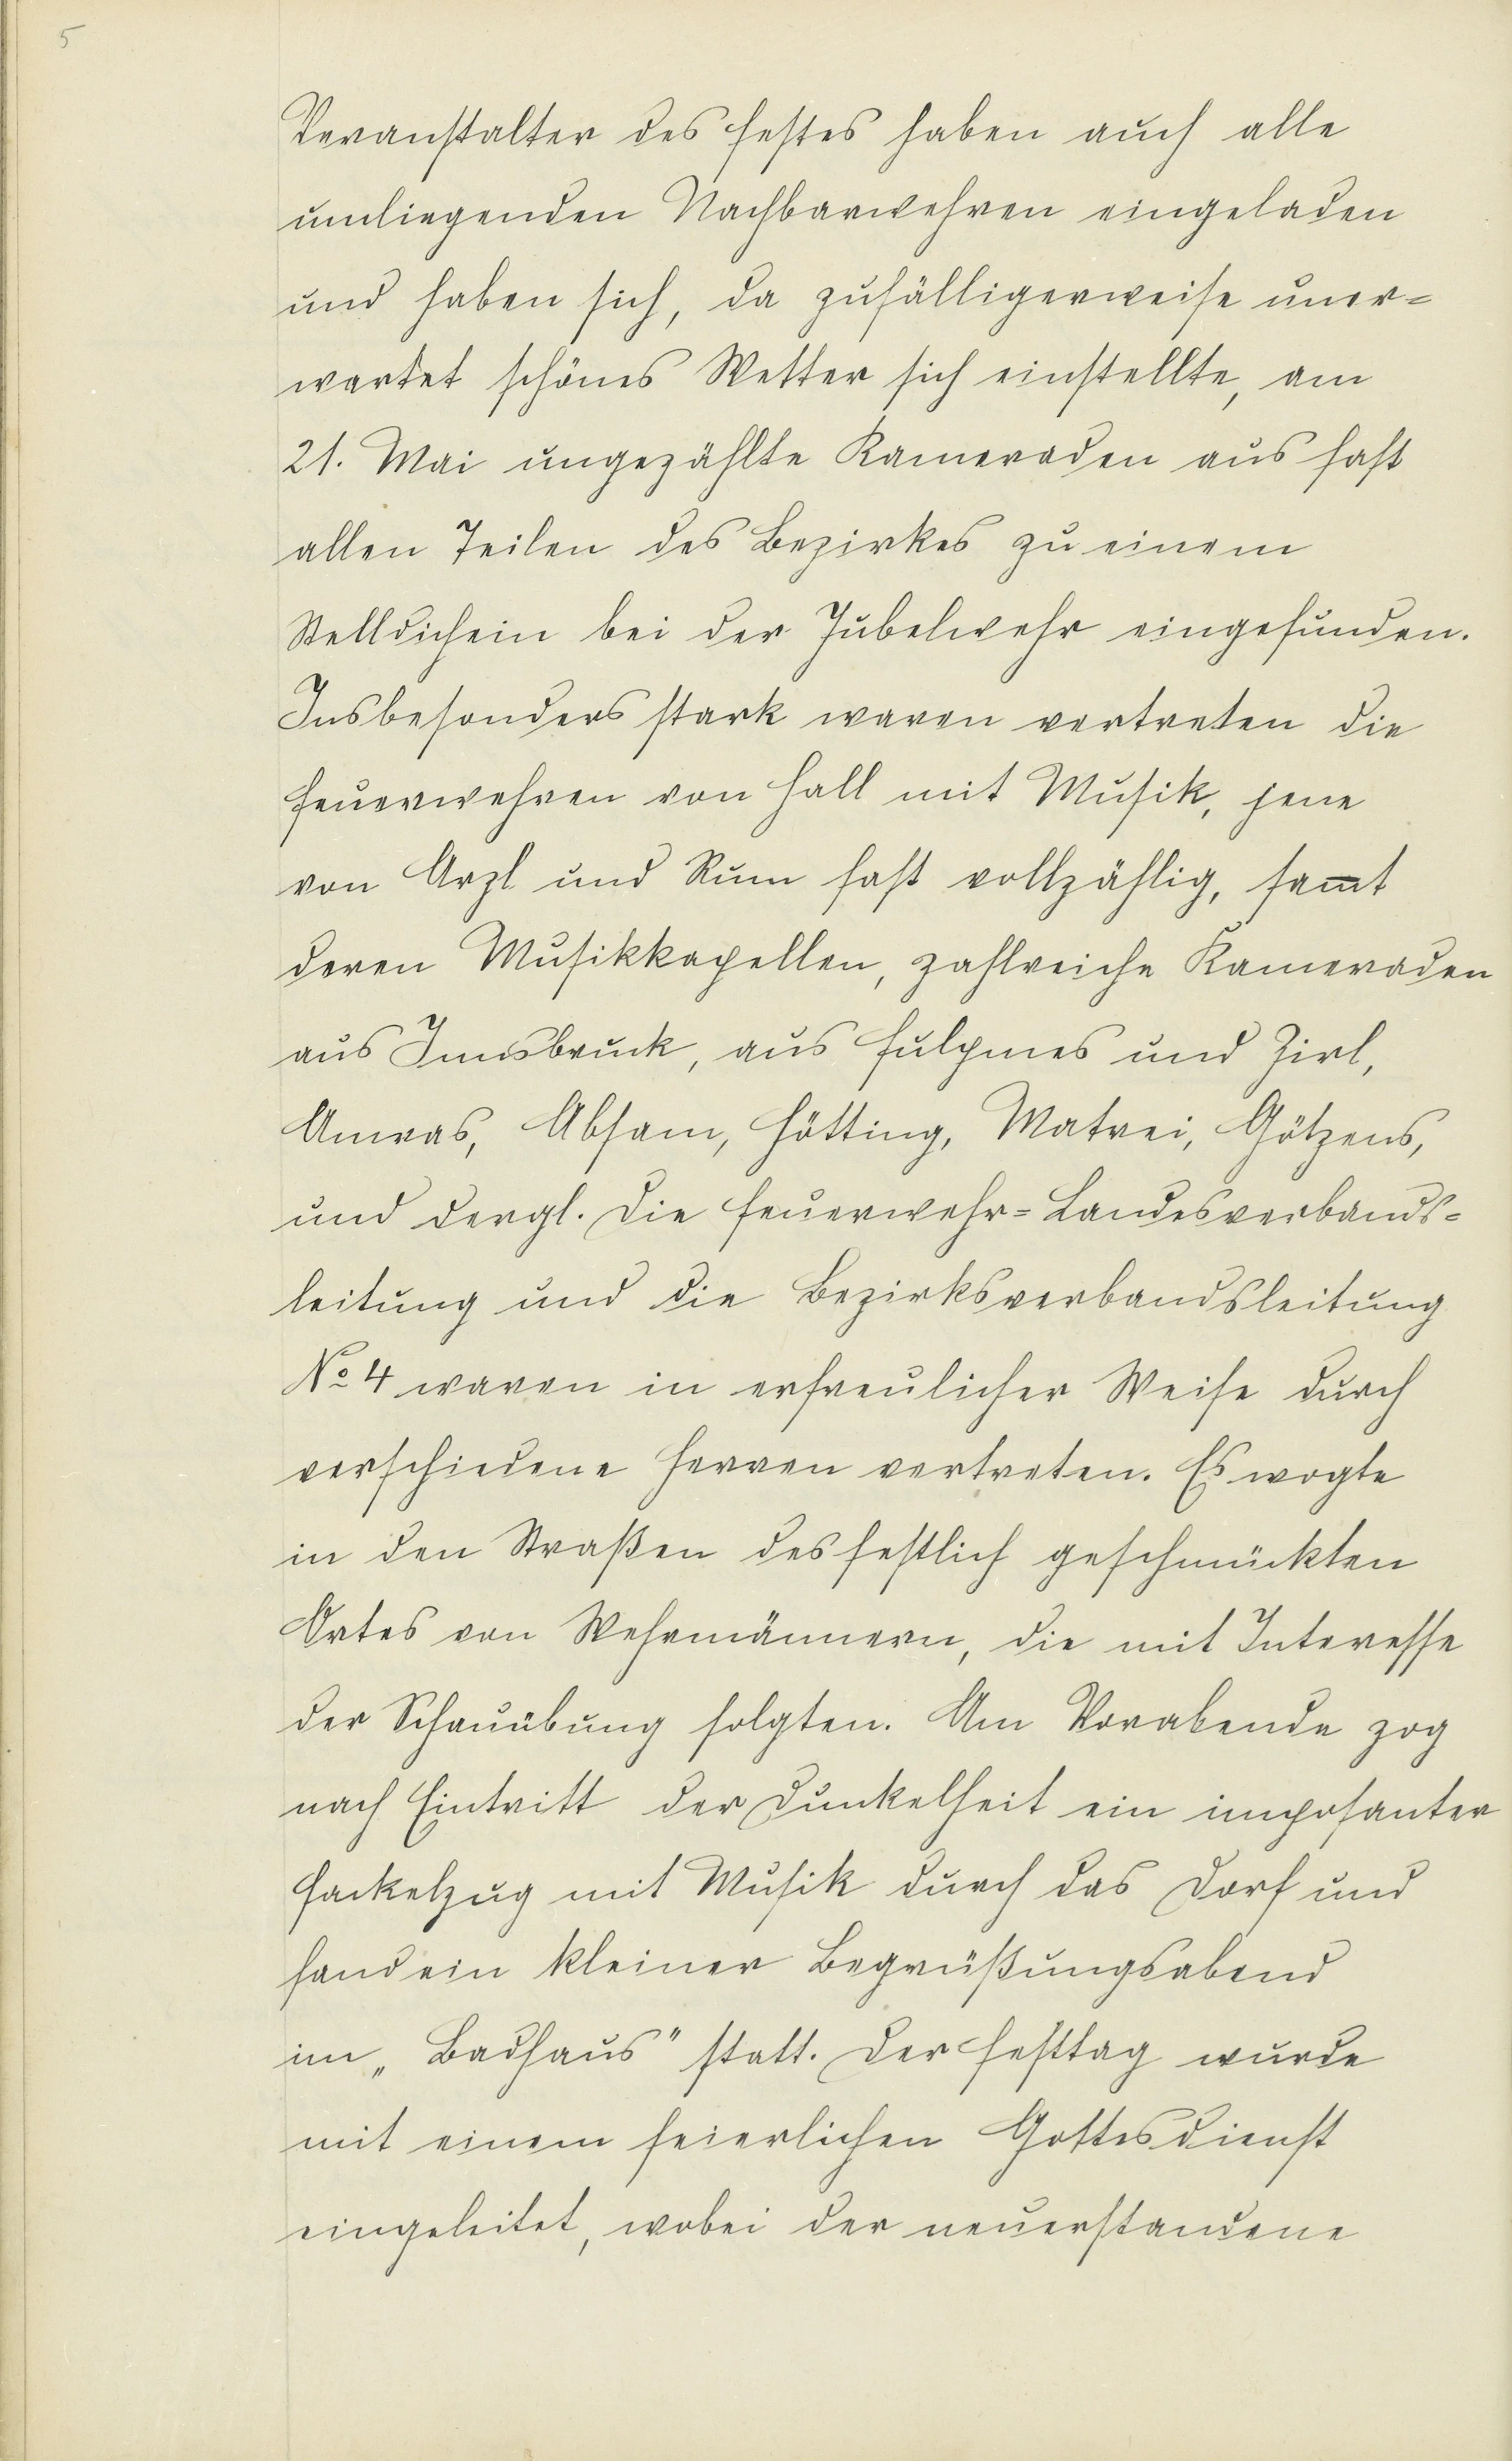 5
Veranstalter des Festes haben auch alle
umliegenden Nachbarwehren eingeladen
und haben sich, da zufälligerweise uner=
wartet schönes Wetter sich einstellte, am
21. Mai ungezählte Kameraden aus fast
allen Teilen des Bezirkes zu einem
Stelldichein bei der Jubelwehr eingefunden.
Insbesonders stark waren vertreten die
Feuerwehren von Hall mit Musik, jene
von Arzl und Rum fast vollzählig, sam̅t
deren Musikkapellen, zahlreiche Kameraden
aus Innsbruck, aus Fulpmes und Zirl,
Amras, Absam, Hötting, Matrei, Götzens,
und dergl. Die Feuerwehr=Landesverbands=
leitung und die Bezirksverbandsleitung
No 4 waren in erfreulicher Weise durch
verschiedene Herren vertreten. Es wogte
in den Straßen des festlich geschmückten
Ortes von Wehrmännern, die mit Interesse
der Schauübung folgten. Am Vorabende zog
nach Eintritt der Dunkelheit ein imposanter
Fackelzug mit Musik durch das Dorf und
fand ein kleiner Begrüßungsabend
im „Badhaus" statt. Der Festtag wurde
mit einem feierlichen Gottesdienst
eingeleitet, wobei der neuerstandene